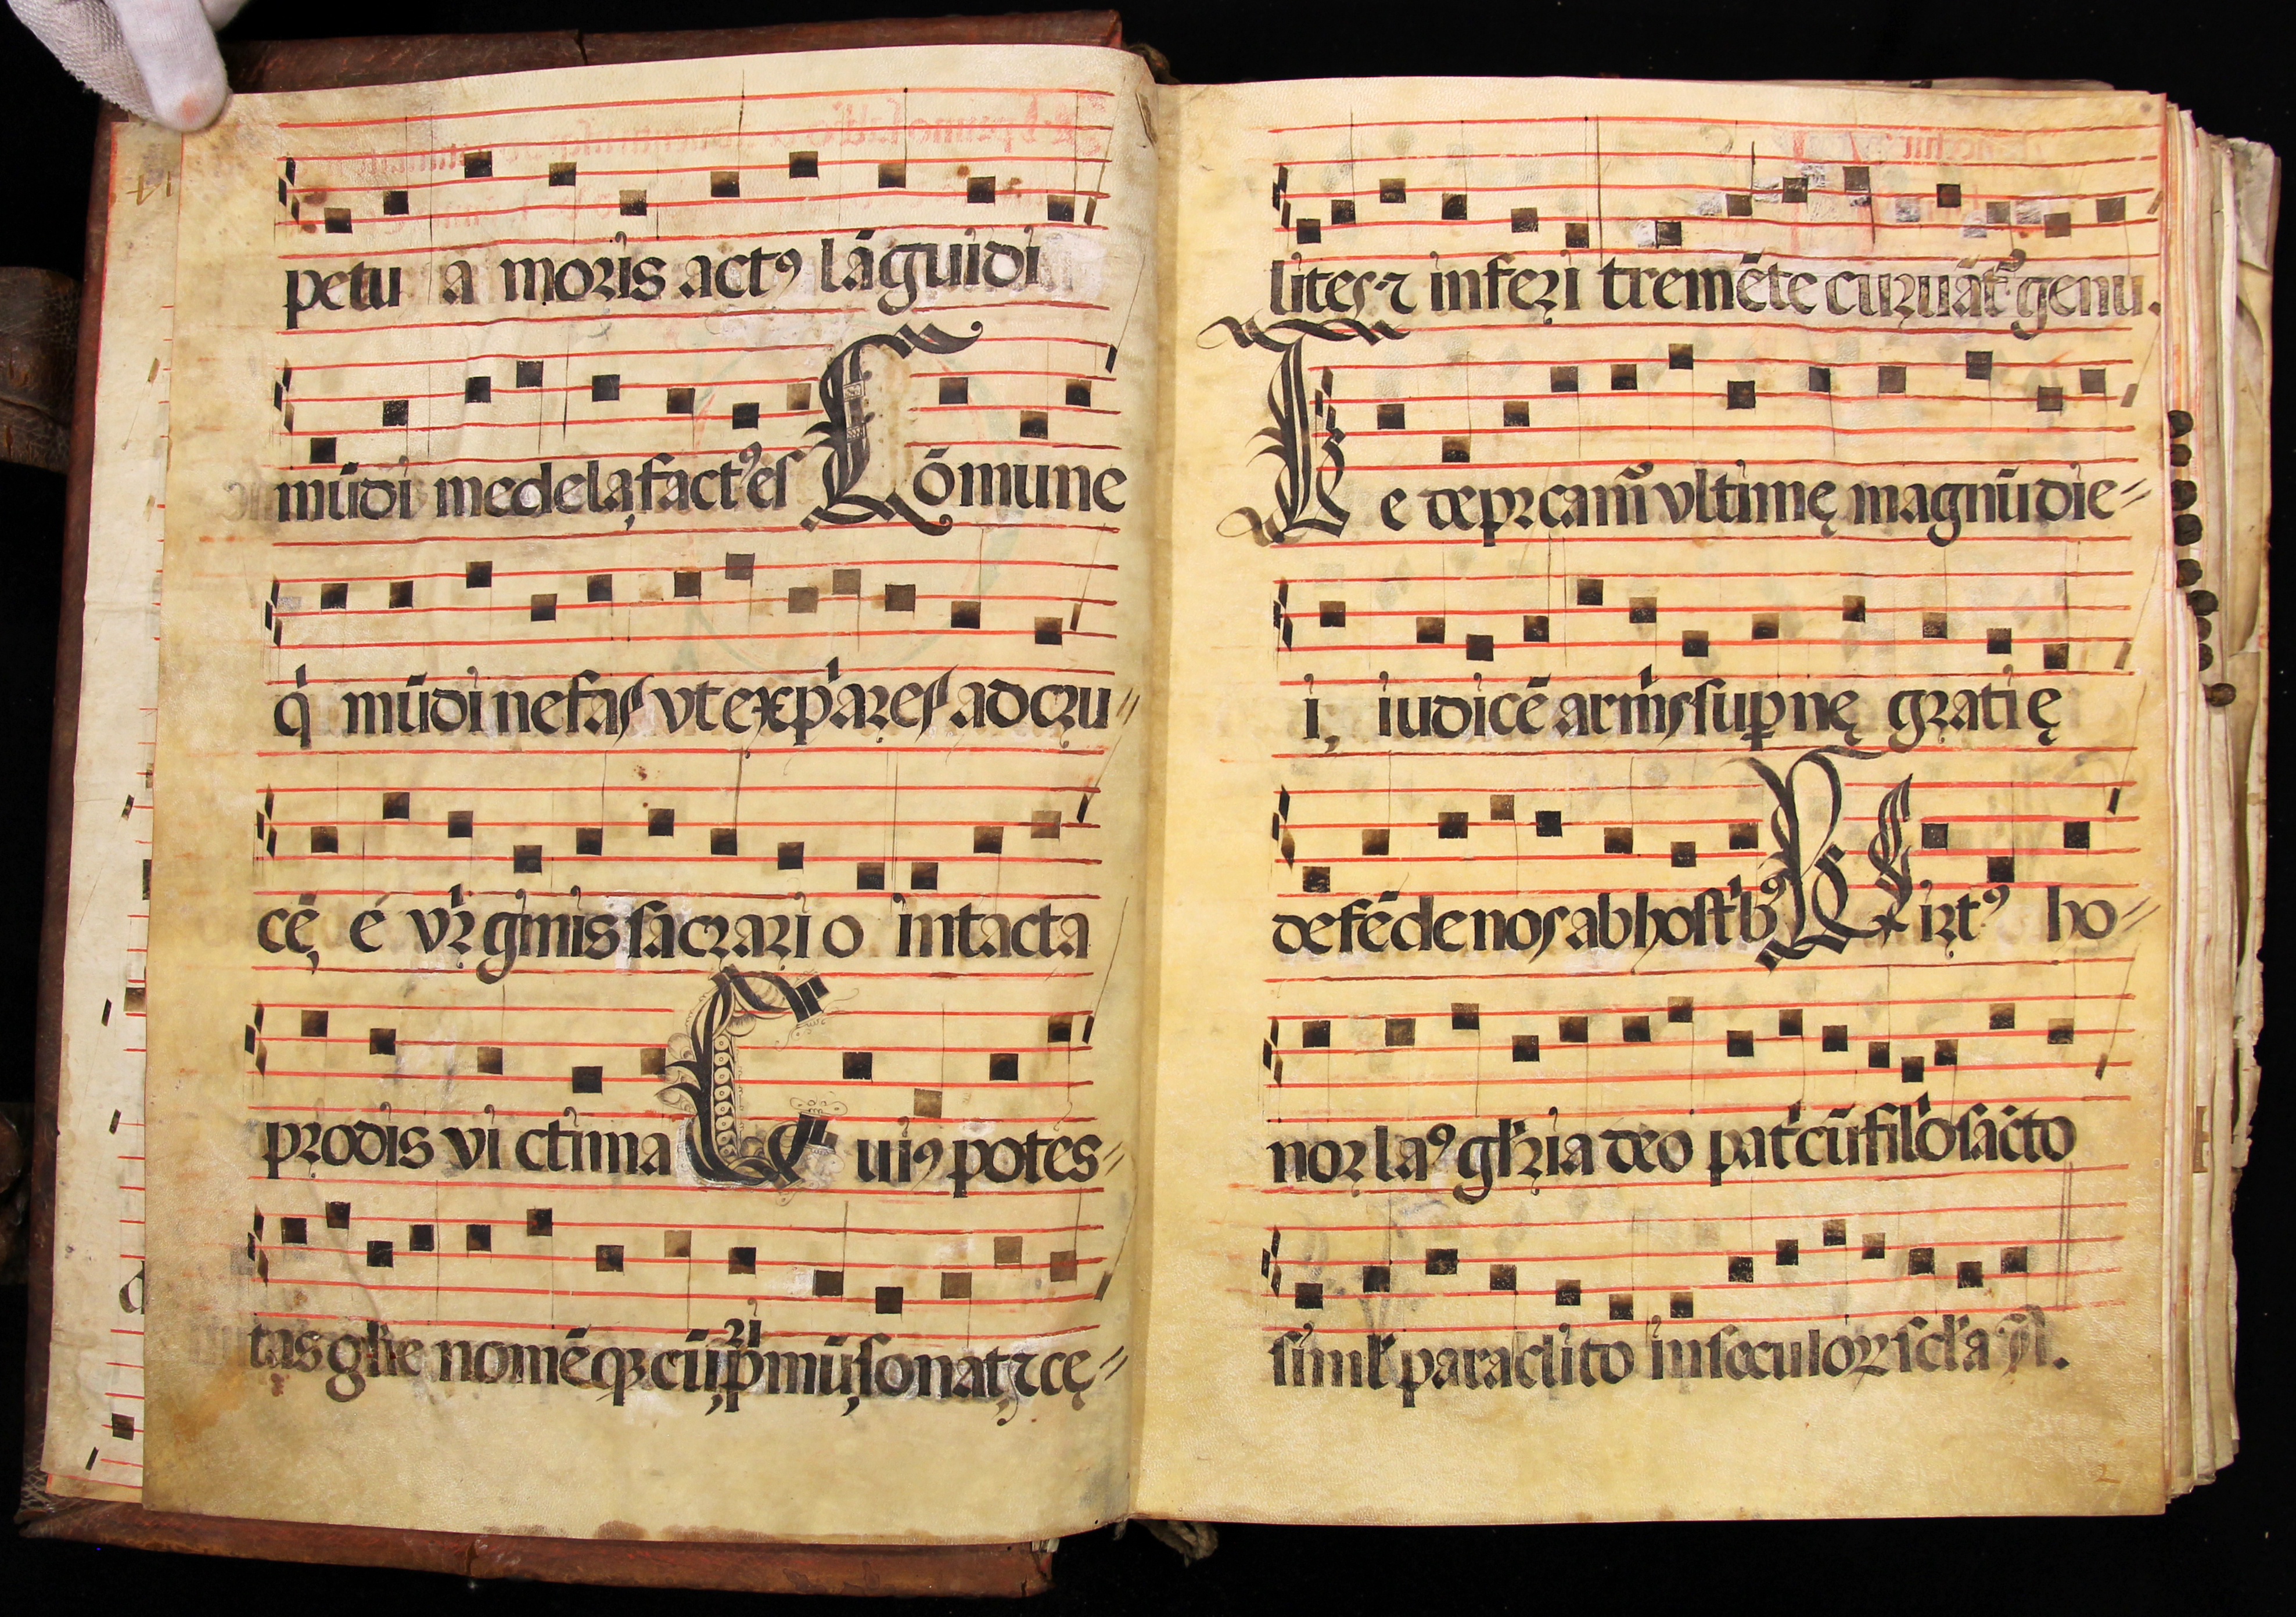 petu a moris actꝰ lāguidi
mūdi medela, factꝰ es Cōmune
q̇ mūdi nefas vt expiares ad cru
cē, é virginis sacrario intacta
prodis victima Cuiꝰ potes
tas glīe nomēqꝫ cū pimū, sonat, ⁊ cę
lites ⁊ inferi tremēte curuāt̄ genu.
Te deprcam̄ vltimę magnū die
i, iudicē armis supnę gratię
defēde nos ab hostibꝰ Virtꝰ ho
nor laꝰ glīria deo pati cū filio sācto
simł paraclito in sæculoꝝ scła
2